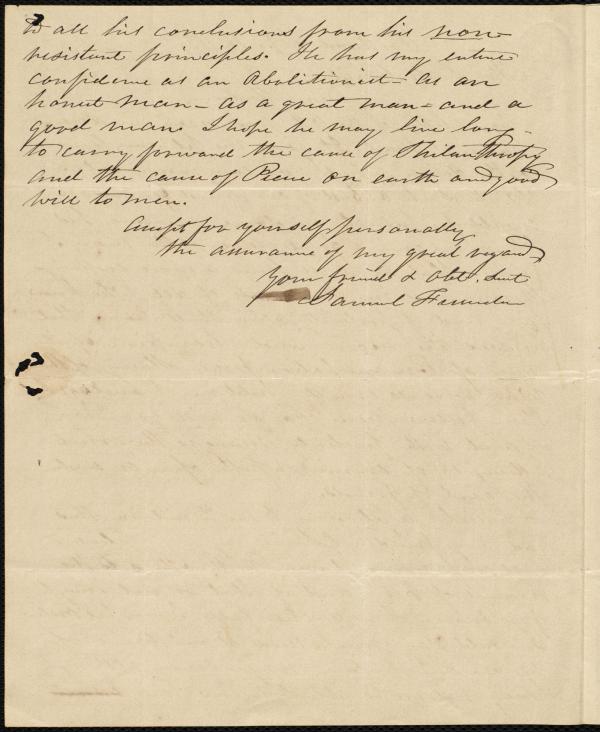 to all his conclusions from his non-
resistant principles. He has my entire
confidence as an Abolitionist – as an
honest man – as a great man – and a
good man. I hope he may live long –
to carry forward the cause of Philanthropy
and the cause of Peace on earth and good
will to men.
Accept for yourself personally
the assurance of my great regard
Your friend & Obt. Servt
Samuel Fessenden